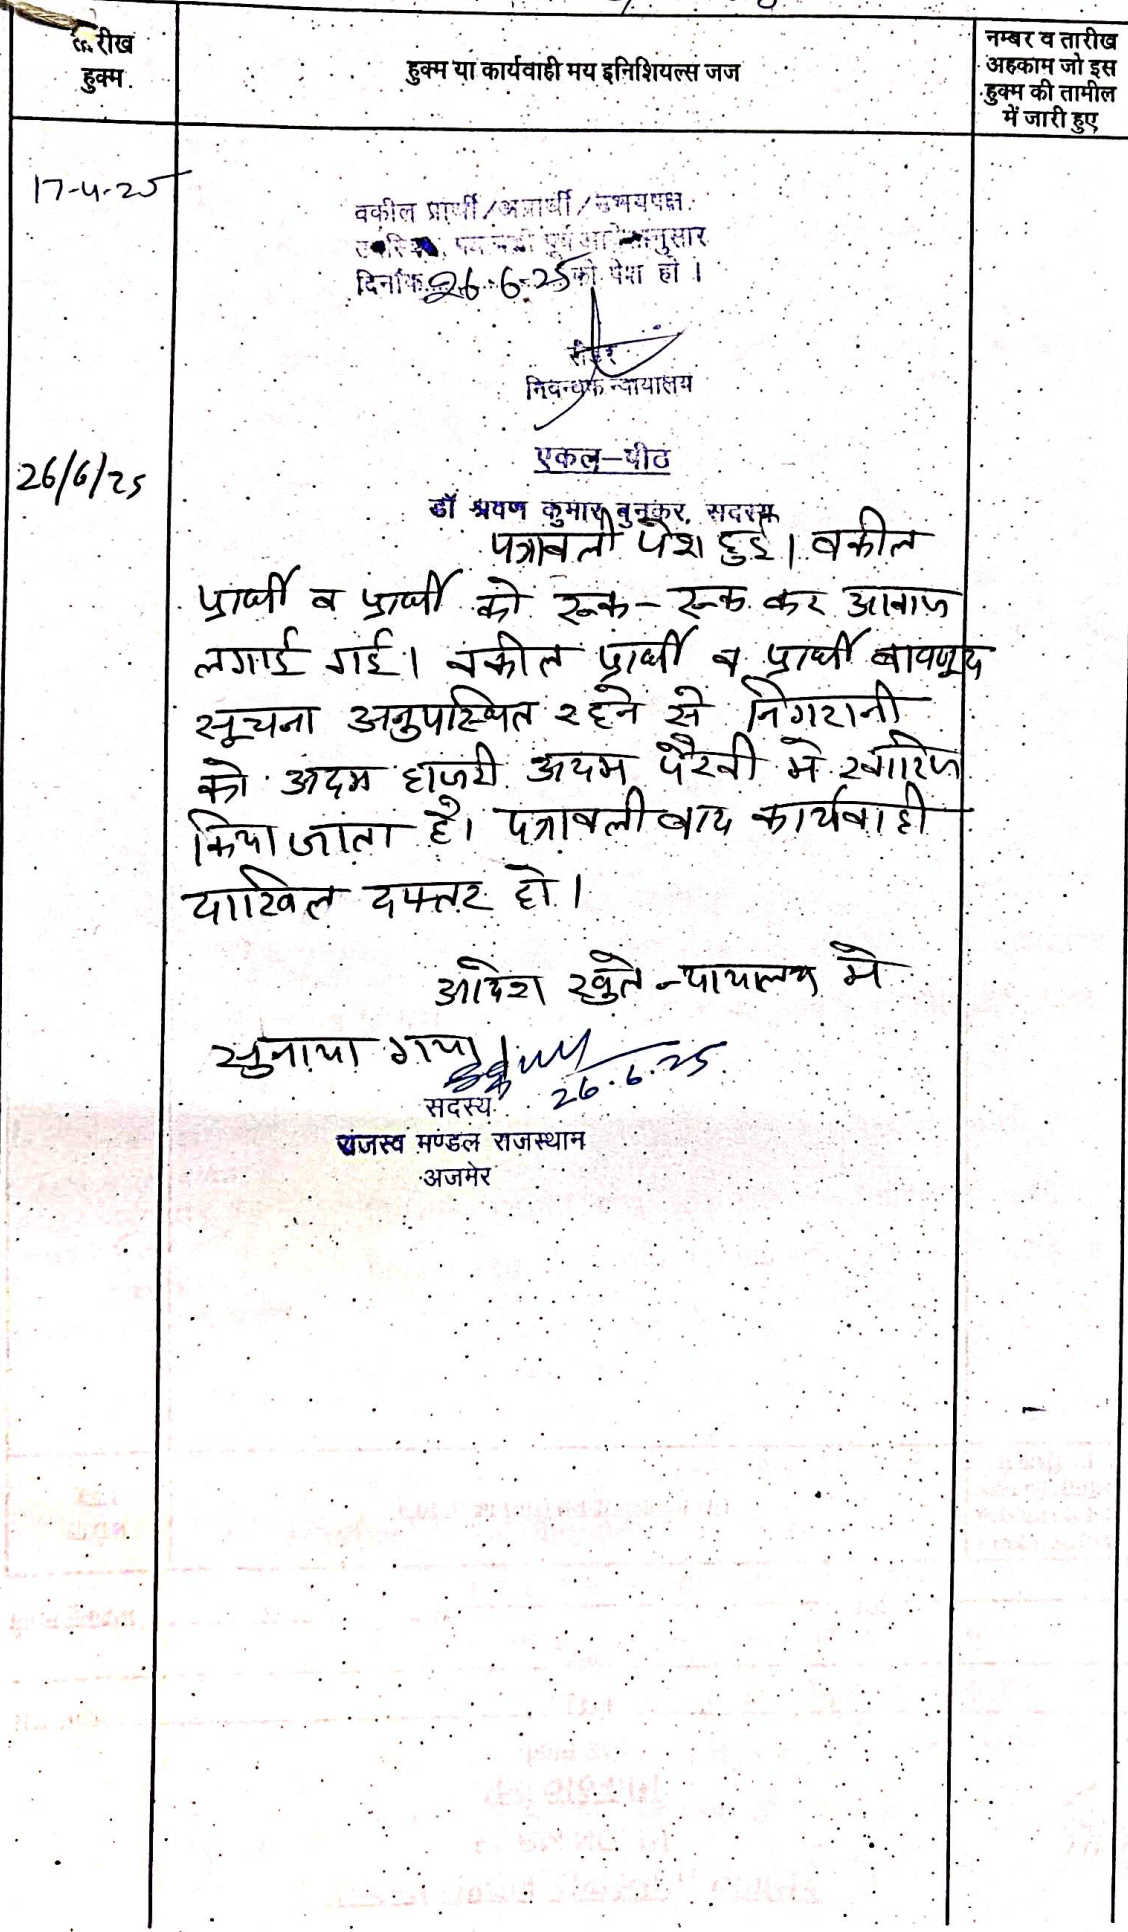 तारीख
हुक्म.
हुक्म या कार्यवाही मय इनिशियल्स जज
नम्बर व तारीख
अहकाम जो इस
हुक्म की तामील
में जारी हुए
17-4-25
वकील प्रार्थी/अप्रार्थी/उभयपक्ष
उपस्थित, पत्रावली पूर्व आदेशानुसार
दिनांक 26-6-25 को पेश हो ।
रीडर
निबन्धक न्यायालय
26/6/25
एकल-पीठ
डॉ श्रवण कुमार बुनकर, सदस्य
पत्रावली पेश हुई। वकील
प्रार्थी व प्रार्थी को रूक-रूक कर आवाज
लगाई गई। वकील प्रार्थी व प्रार्थी बावजूद
सूचना अनुपस्थित रहने से निगरानी
को अदम हाजरी अदम पैरवी में खारिज
किया जाता है। पत्रावली बाद कार्यवाही
दाखिल दफ्तर हो।
आदेश खुले न्यायालय में
सुनाया गया।
26.6.25
सदस्य
राजस्व मण्डल राजस्थान
अजमेर